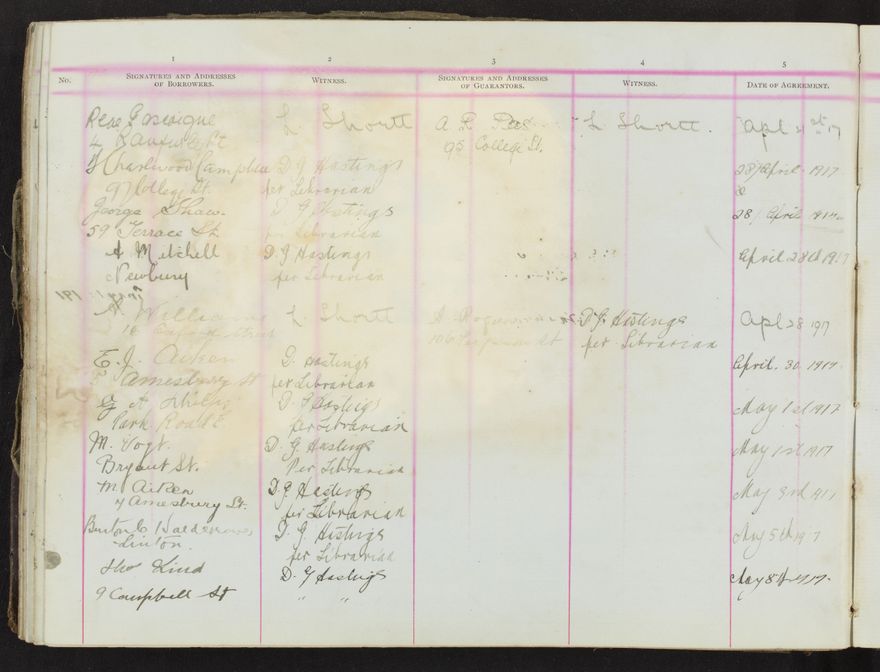 1 2 3 4 5
No. SIGNATURES AND ADDRESSES OF BORROWERS. WITNESS. SIGNATURES AND ADDRESSES OF GUARANTORS. WITNESS. DATE OF AGREEMENT.
Gascoigne L Shortt A. R. L Shortt. Apl 21st 17
4 St 95 College St.
Charlwood Campbell D G Hastings 28/April 1917
97 College St. per Librarian &
George Shaw. D G Hastings 28/ April 1917
59 Terrace St. per Librarian
A Mitchell D. G Hastings April 28th 1917
Newbury per Librarian
191
Williams L Shortt D. G. Hastings Apl 28 1917
16 Street St per Librarian
E. J. Aitken G. Hastings April. 30. 1917
7 Amesbury St per Librarian
A D. G Hastings May 1st 1917
Park Road per Librarian
M. Vogt. D. G. Hastings May 1st 1917
Bryant St. Per Librarian
M. Aitken D. G Hastings May 3rd 1917
7 Amesbury St. per Librarian
Burton C D. G. Hastings May 5th 1917
Linton. per Librarian
Thos Kind D. G Hastings May 8th 1917.
9 Campbell St " "